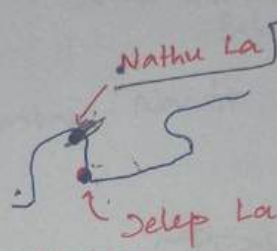 Nathu La
Jelep La